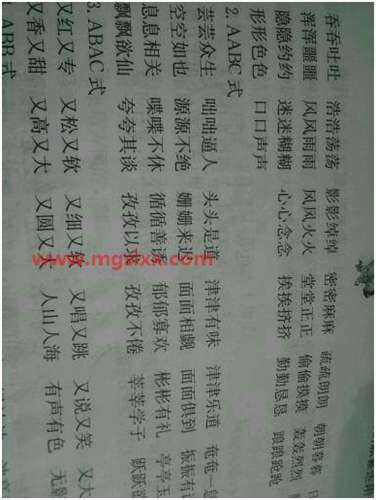 吞吞吐吐 浩浩荡荡 影影绰绰 密密麻麻 疏疏朗朗 朝朝暮暮
浑浑噩噩 风风雨雨 风风火火 堂堂正正 偷偷摸摸 轰轰烈烈
隐隐约约 迷迷糊糊 心心念念 挨挨挤挤 勤勤恳恳 踉踉跄跄
形形色色 口口声声
2. AABC 式
芸芸众生 咄咄逼人 头头是道 津津有味 津津乐道 奄奄一
空空如也 源源不绝 姗姗来迟 面面相觑 面面俱到 振振有
息息相关 喋喋不休 循循善诱 郁郁寡欢 彬彬有礼 亭亭玉
飘飘欲仙 夸夸其谈 孜孜以求 孜孜不倦 莘莘学子 跃跃欲
3. ABAC 式
又红又专 又松又软 又细又长 又唱又跳 又说又笑 又大
又香又甜 又高又大 又圆又大 人山人海 有声有色 无影
ABB 式